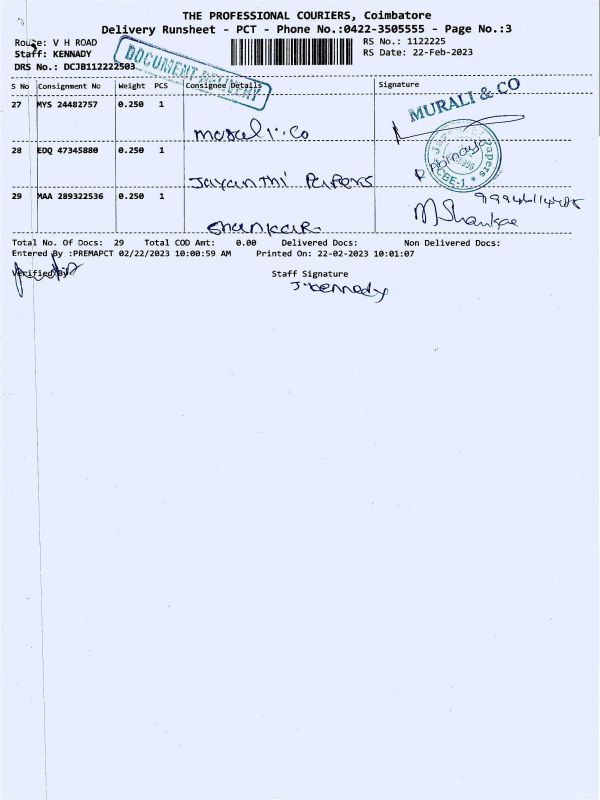 THE PROFESSIONAL COURIERS, Coimbatore
Delivery Runsheet - PCT - Phone No.:0422-3505555 - Page No.:3
Route: V H ROAD
RS No.: 1122225
Staff: KENNADY
RS Date: 22-Feb-2023
DRS No.: DCJB112222503
DOCUMENT DELIVERY
S No Consignment No Weight PCS Consignee Details Signature
27 MYS 24482757 0.250 1
MURALI & CO
Murali & Co
28 EDQ 47345880 0.250 1
Jayanthi Papers
CBE-1
29 MAA 289322536 0.250 1
Shankar
M Shankar
Total No. Of Docs: 29 Total COD Amt: 0.00 Delivered Docs: Non Delivered Docs:
Entered By :PREMAPCT 02/22/2023 10:00:59 AM Printed On: 22-02-2023 10:01:07
Verified By:
Staff Signature
J. Kennedy